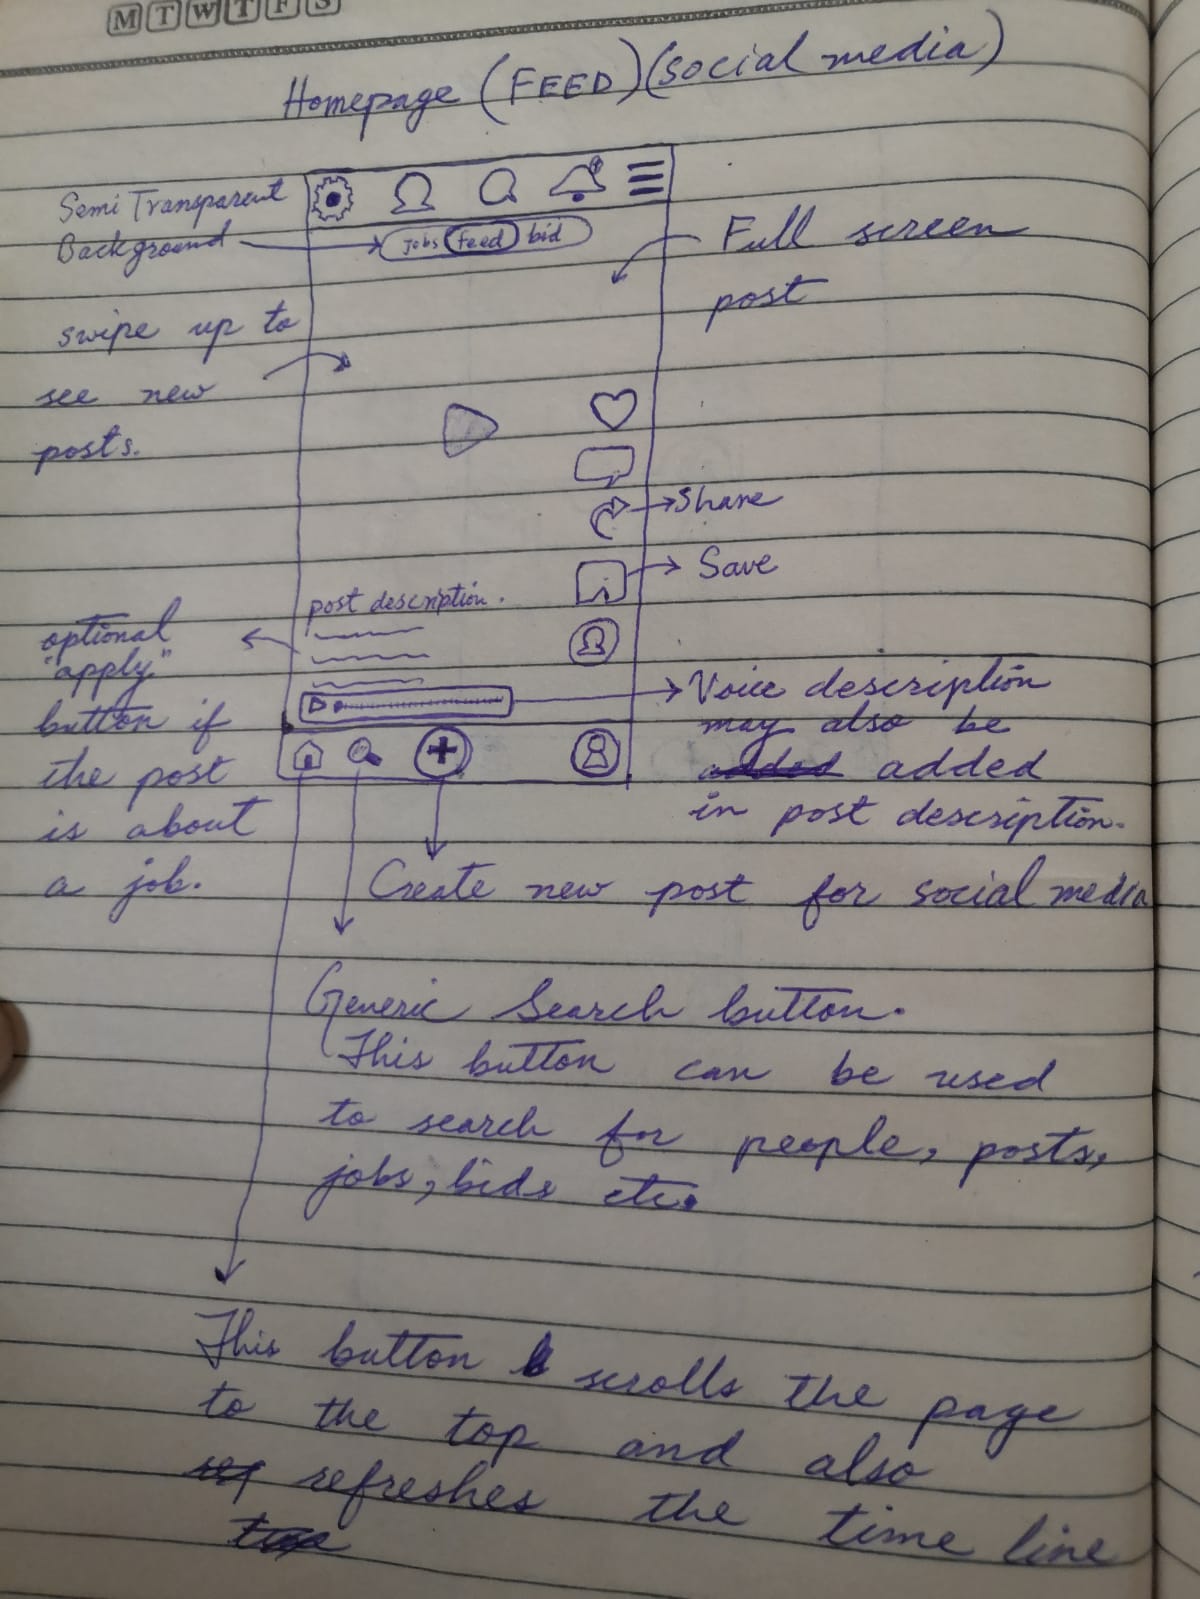 M T W T F S
Homepage (FEED) (social media)
Semi Transparent
Background
jobs feed bid
Full screen
post
swipe up to
see new
posts.
Share
Save
post description.
optional
"apply"
button if
the post
is about
a job.
Voice description
may also be
added added
in post description.
Create new post for social media
Generic Search button.
This button can be used
to search for people, posts,
jobs, bids etc.
This button scrolls the page
to the top and also
ref refreshes the time line